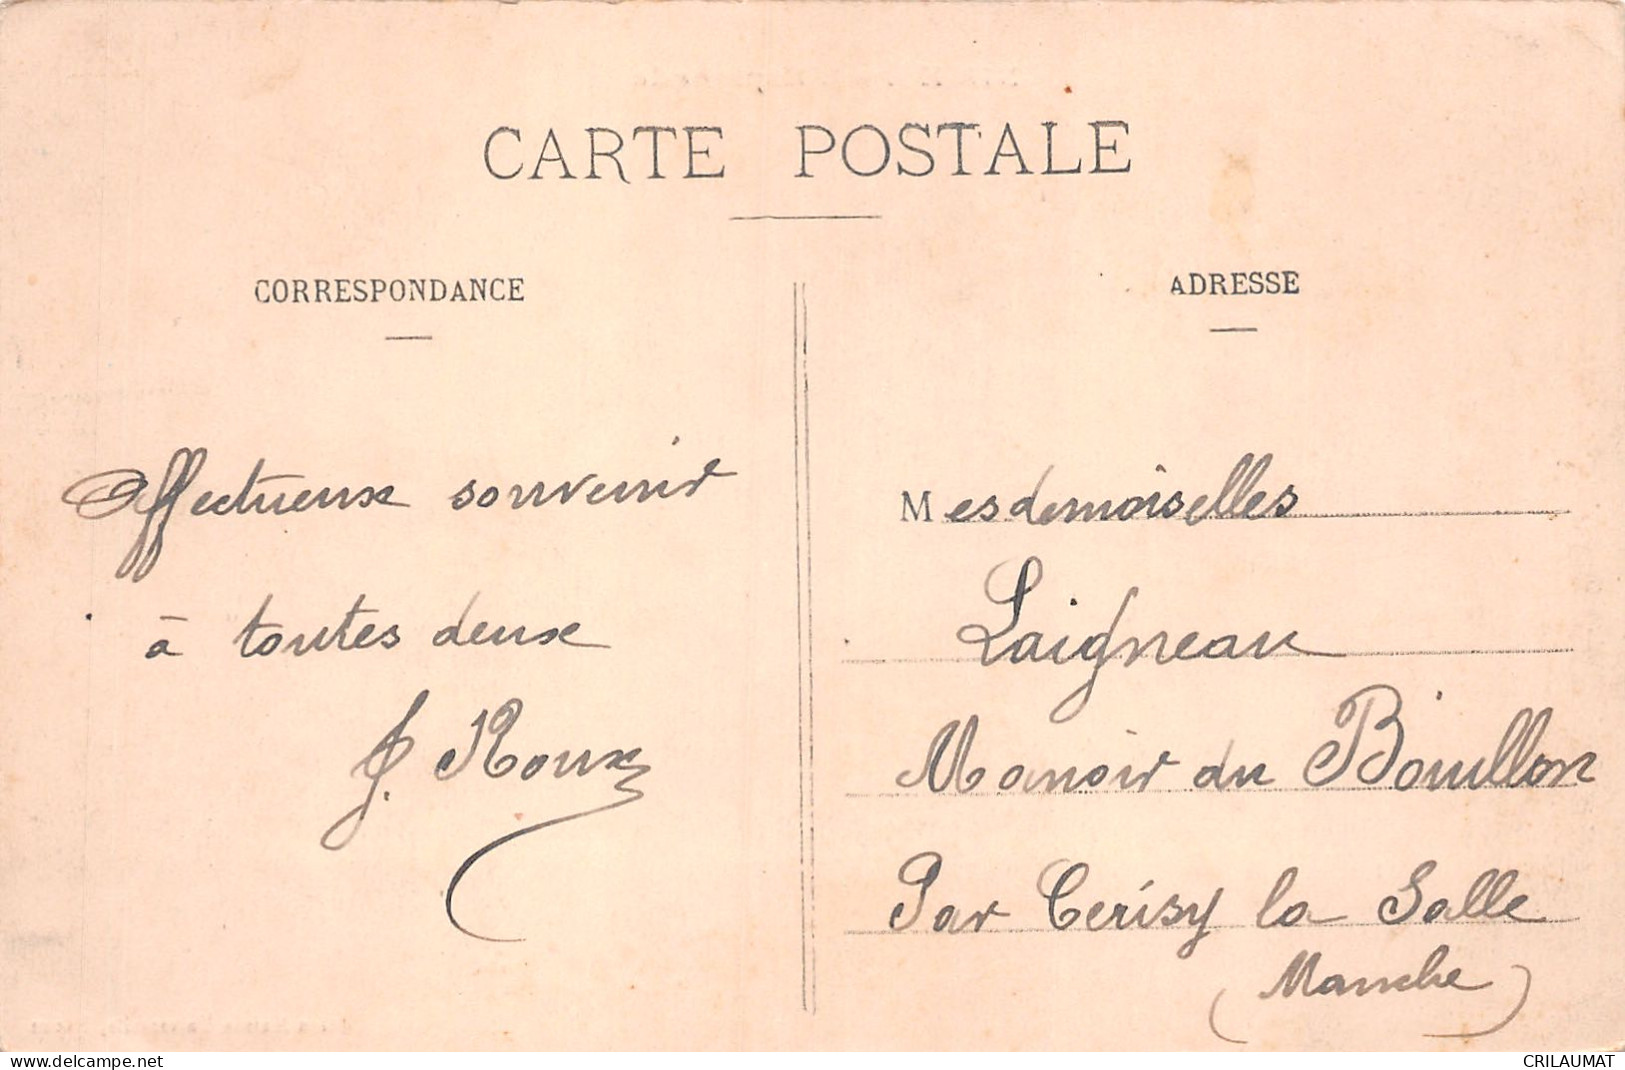 CARTE POSTALE
CORRESPONDANCE
ADRESSE
Affectueux souvenir
à toutes deux
J. Roux
Mesdemoiselles
Laigneau
Manoir du Bouillon
Par Cerisy la Salle
(Manche)
www.delcampe.net
CRILAUMAT